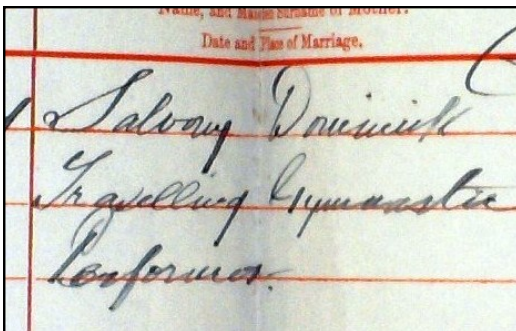 Name, and Maiden Surname of Mother.
Date and Place of Marriage.
Dominick
Travelling Gymnastic
Performer.